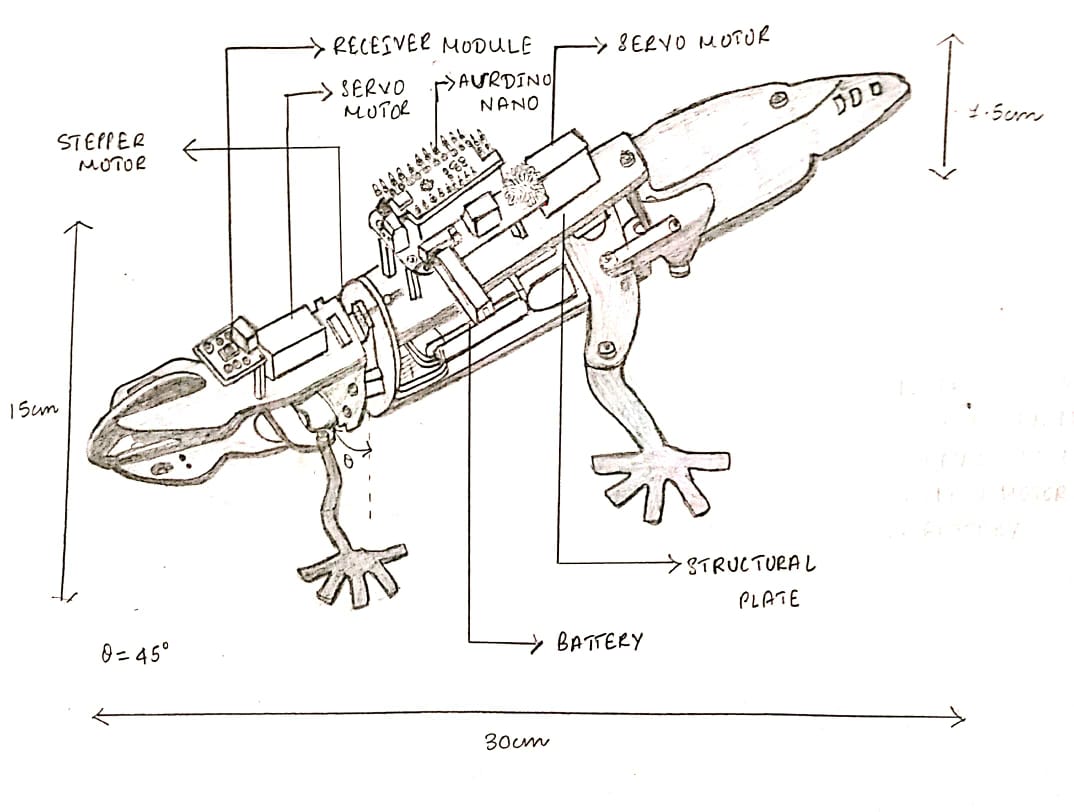 RECEIVER MODULE
SERVO MOTOR
SERVO
MOTOR
AURDINO
NANO
STEPPER
MOTOR
1.5cm
15cm
θ
STRUCTURAL
PLATE
BATTERY
θ = 45°
30cm